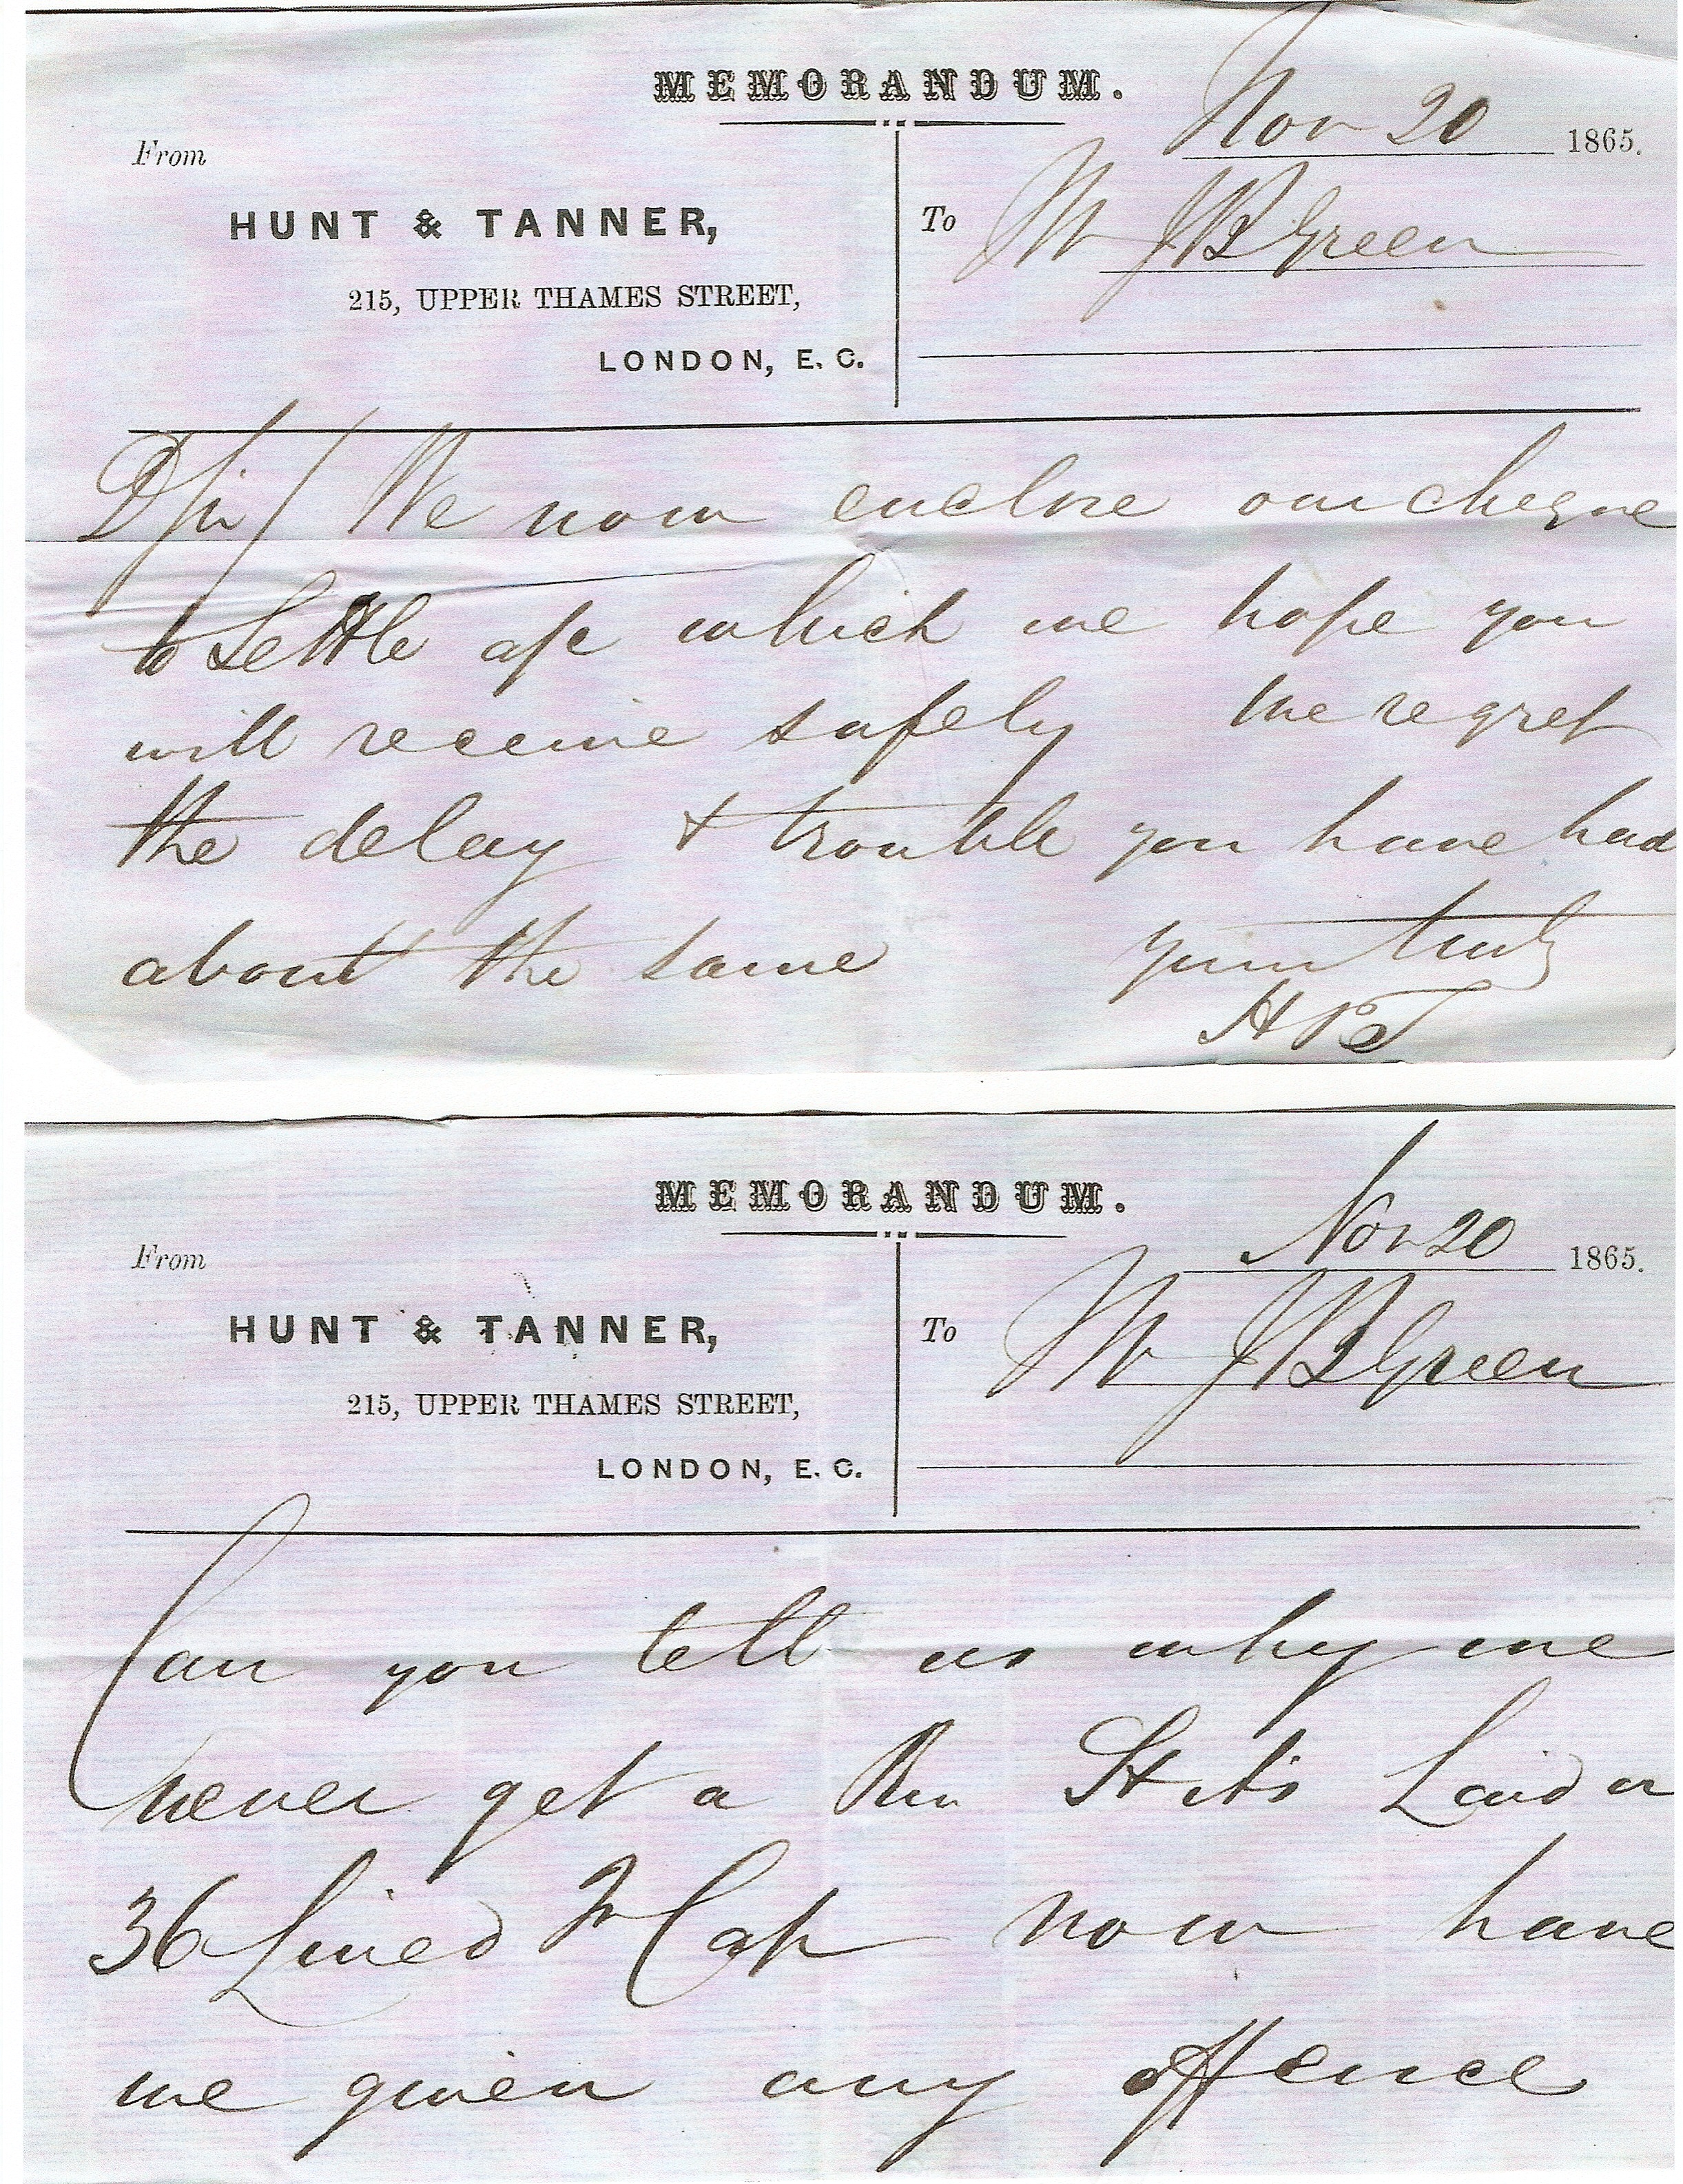 MEMORANDUM.
Nov 20 1865.
From
HUNT & TANNER,
To Mr J B Green
215, UPPER THAMES STREET,
LONDON, E. C.
D Sir/ We now enclose our cheque
to settle a/c which we hope you
will receive safely We regret
the delay & trouble you have had
about the same yours truly
H & T
MEMORANDUM.
Nov 20 1865.
From
HUNT & TANNER,
To Mr J B Green
215, UPPER THAMES STREET,
LONDON, E. C.
Can you tell us why we
never get a Rm Laid or
36 Lined F Cap now have
we given any offence